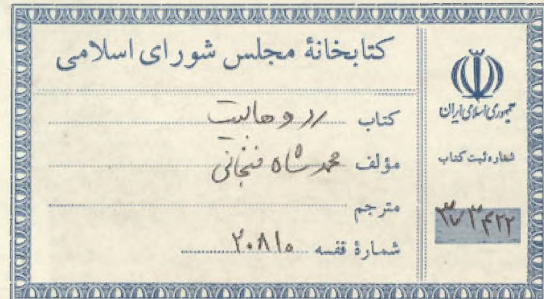 کتابخانهٔ مجلس شورای اسلامی
کتاب
مؤلف محمد شاه
مترجم
شمارهٔ قفسه ۲۰۸۱۵
جمهوری اسلامی ایران
شماره ثبت کتاب